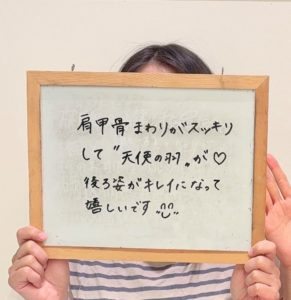 肩甲骨まわりがスッキリ
して〝天使の羽〟が♡
後ろ姿がキレイになって
嬉しいです